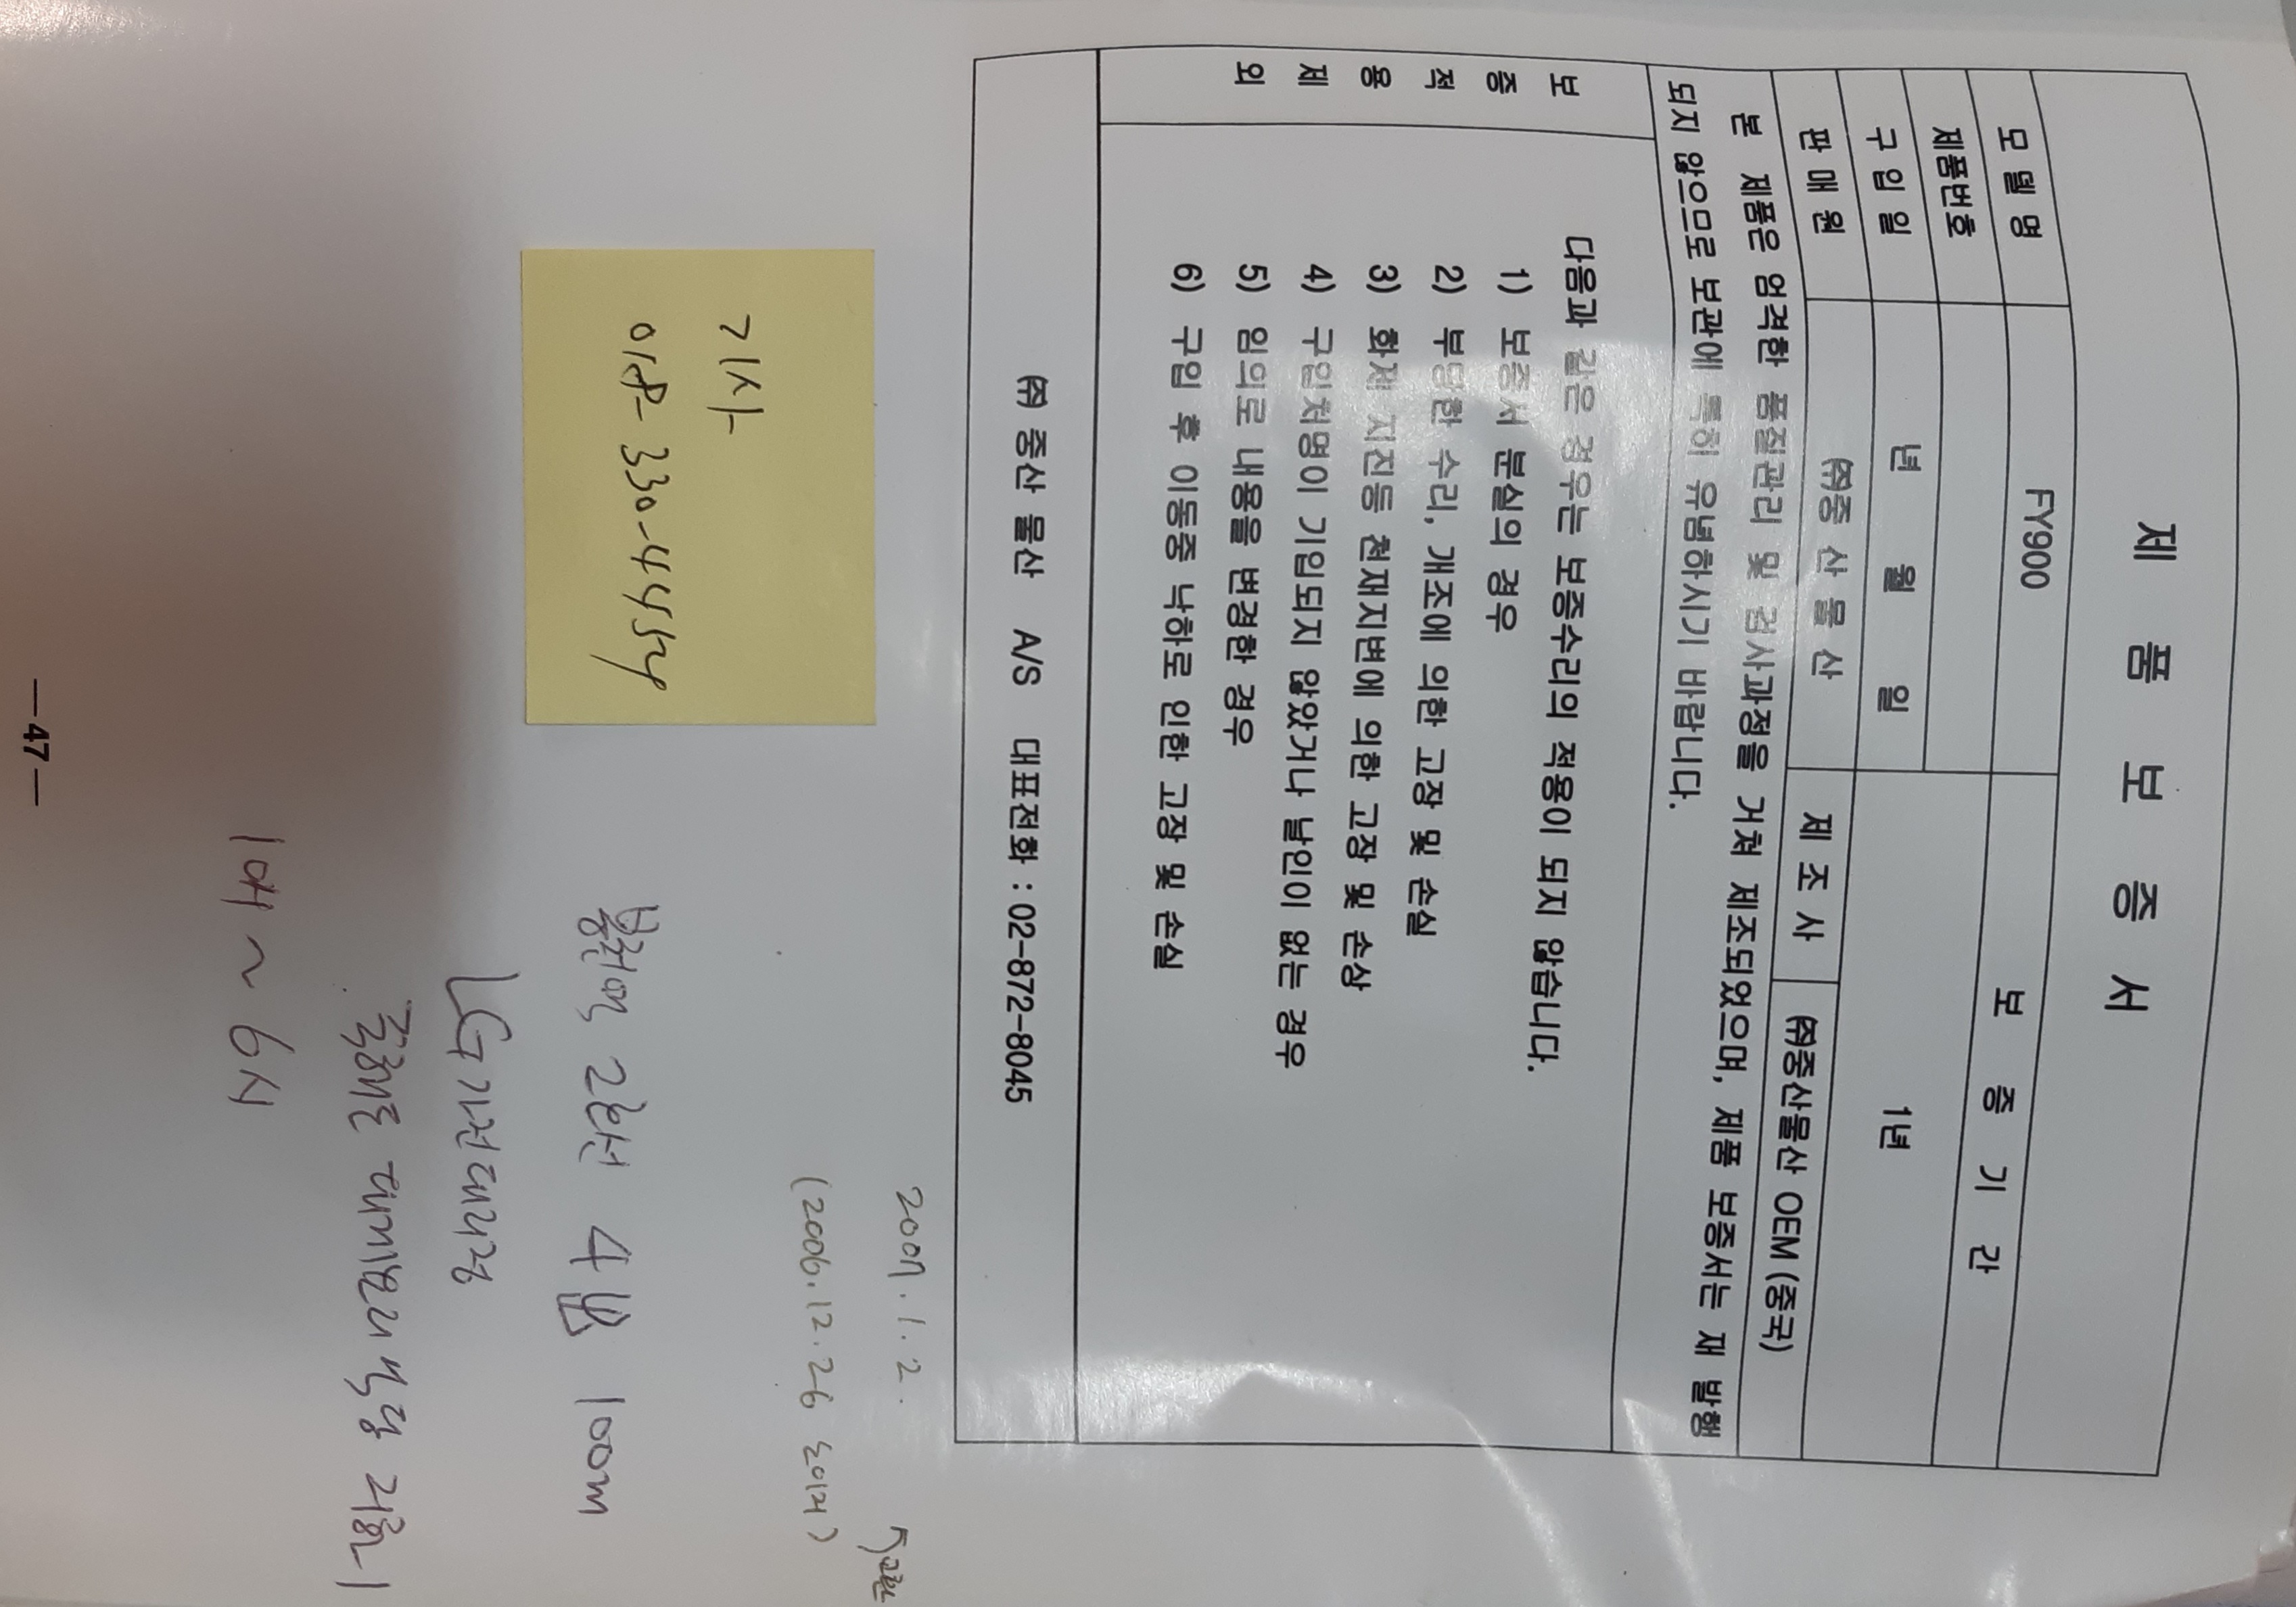 제 품 보 증 서
모 델 명 FY900 보 증 기 간
제품번호
구 입 일 년 월 일 1년
판 매 원 ㈜중 산 물 산 제 조 사 ㈜중산물산 OEM (중국)
본 제품은 엄격한 품질관리 및 검사과정을 거쳐 제조되었으며, 제품 보증서는 재 발행
되지 않으므로 보관에 특히 유념하시기 바랍니다.
보 증 적 용 제 외
다음과 같은 경우는 보증수리의 적용이 되지 않습니다.
1) 보증서 분실의 경우
2) 부당한 수리, 개조에 의한 고장 및 손실
3) 화재 지진등 천재지변에 의한 고장 및 손상
4) 구입처명이 기입되지 않았거나 날인이 없는 경우
5) 임의로 내용을 변경한 경우
6) 구입 후 이동중 낙하로 인한 고장 및 손실
㈜ 중산 물산 A/S 대표전화 : 02-872-8045
2007. 1. 2.
↖교환
(2006. 12. 26
기사
018-330-4454
봉천역 2호선 4번 100m
LG가전대리점
1시 ~ 6시
—47—